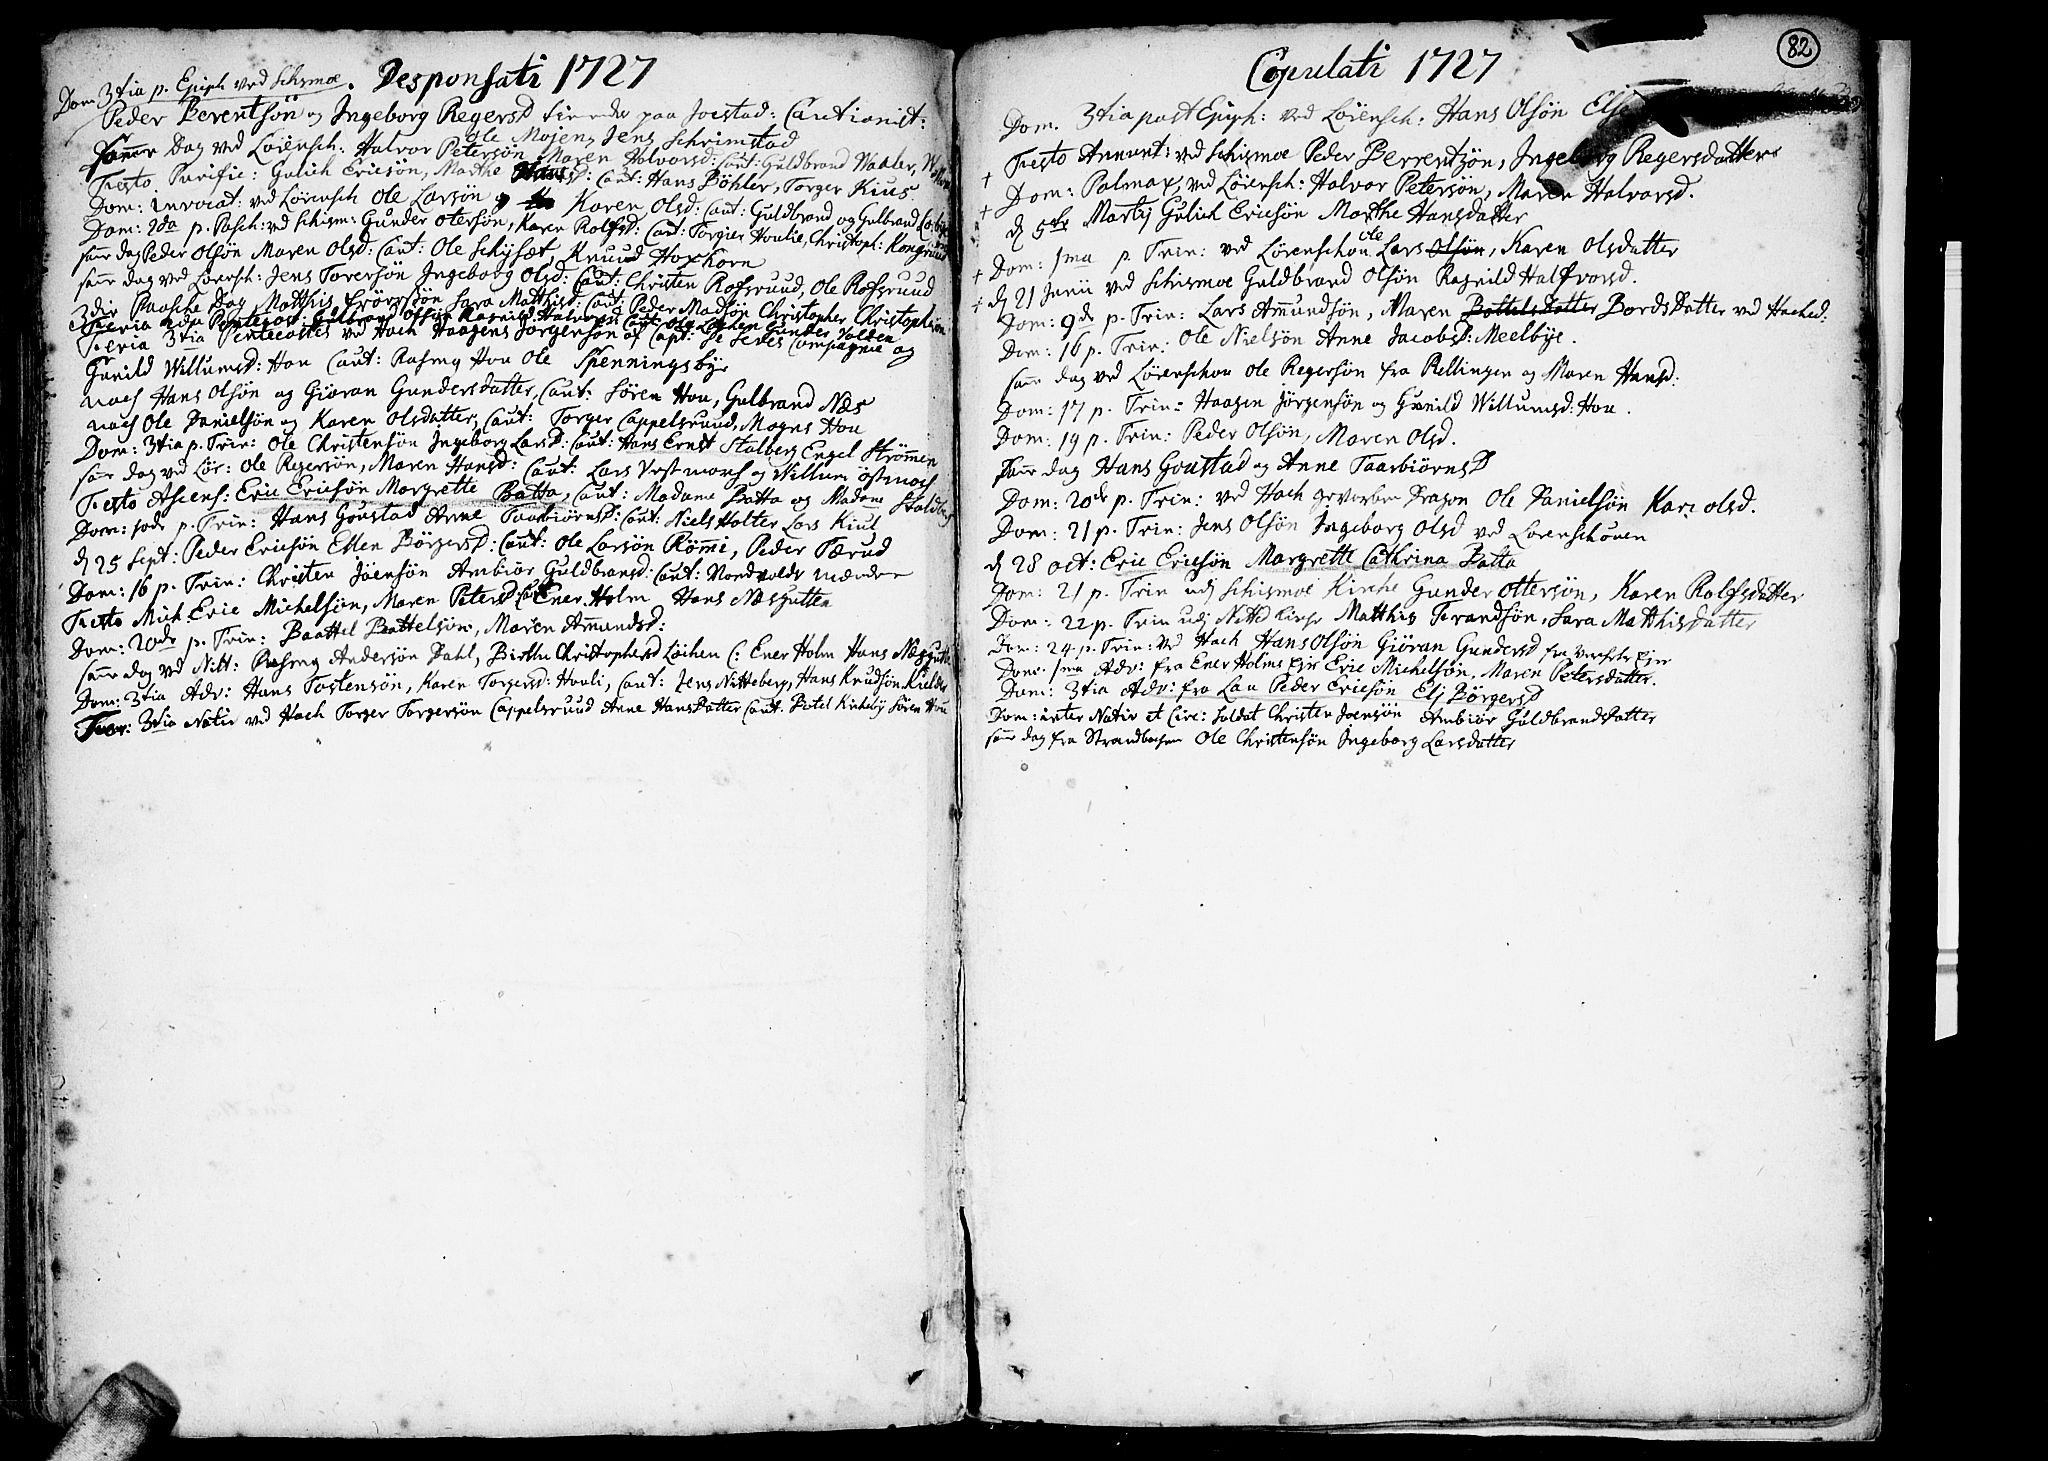 Desponsati 1727
Dom 3tia p. Epiph ved Schismoe.
Peder Berentsön og Ingeborg Regersd tienende paa Joestad: Cautionist:
Ole Mojen, Jens Schrimstad
Samme Dag ved Löiensch: Halvor Petersön Maren Halvorsd: Caut: Guldbrand
Festo Purific: Gulich Ericsön, Marthe Hansd: Caut: Hans Böhler, Torger Kius
Dom: invocat: ved Lörensch Ole Larsön Karen Olsd: Caut: Guldbrand og Gulbrand
Dom: 2da p. Pasch: ved Schism: Gunder Otersön, Karen Rolfsd: Caut: Torgier Houlie, Christoph: Kongsruud
samme dag Peder Olsön Maren Olsd: Caut: Ole Schijset, Knuud Hoxhorn
samme dag ved Lörensch: Jens Torersön Ingeborg Olsd: Caut: Christen Rofsruud, Ole Rofsruud
3die Paasche Dag Matthis Sara Matthisd: Caut: Peder Madsön Christopher Christophersön
Feria 2da Pentecost: Gulbrand Olsön Ragnild Halvorsd Caut: Ole Lochen Gunder Volden
Feria 3tia Pentecostes ved Hoch Haagens Jörgensön af Capt: Compagnie og
Gunild Willumsd: Hou Caut: Rasmg Hou Ole Spenningsbye
noch Hans Olsön og Giöran Gundersdatter, Caut: Sören Hou, Gulbrand Næs
noch Ole Danielsön og Karen Olsdatter, Caut: Torger Cappelsruud, Mogns Hou
Dom: 3tia p. Trin: Ole Christensön Ingeborg Larsd: Caut: Hans Ernst Stalberg Engel Strömmen
samme dag ved Lör: Ole Regersön, Maren Hansd: Caut: Lars Vestmoch og Willum Östmoch
Festo Ascens: Eric Ericsön Margrette Batta, Caut: Madame Batta og Madame
Dom: 10de p. Trin: Hans Goustad Anne Taarbiörnsd: Caut: Niels Holter Lars Kiul
d 25 Sept: Peder Ericsön Ellen Börgersd: Caut: Ole Larsön Römmi, Peder Færud
Dom: 16 p. Trin: Christen Joensön Ambiör Guldbransd: Caut:
Festo Mich Eric Michelsön, Maren Petersd Caut Ener Holm Hans Næsgutten
Dom: 20de p. Trin: Baattel Baattelsön, Maren Amundsd:
samme dag ved Nitt: Rasmg Andersön Dahl, Birthe Christophersd Lochen C: Ener Holm Hans Næsgutte
Dom: 3tia Adv: Hans Tostensön, Karen Torgersd: Houli, Caut: Jens Nitteberg, Hans Knudsön
Feer: 3tia Nativ ved Hoch Torger Torgersön Cappelsruud Anne Hansdatter Caut: Botel Kirkeby Sören Hou
82
Copulati 1727
Dom. 3tia post Epiph: ved Löiensch: Hans Olsön
Festo Annunt: ved Schismoe Peder Berrentzön, Ingeborg Regersdatter
† Dom: Palmar, ved Löiensch: Halvor Petersön, Maren Halvorsd.
† d 5te Martij Gulich Ericsön Marthe Hansdatter
Dom: 1ma p Trin: ved Lörenschou Ole Lars Olsön, Karen Olsdatter
† d 21 Junii ved Schismoe Guldbrand Olsön Ragnild Halfvorsd.
† Dom: 9de p. Trin: Lars Amundsön, Maren Bottelsdatter Bordsdatter ved Hached:
Dom: 16 p. Trin: Ole Nielsön Anne Jacobsd: Meelbye.
samme dag ved Lörenschou Ole Regersön fra Rellingen og Maren Hansd:
Dom: 17 p. Trin: Haagen Jörgensön og Gunild Willumsd: Hou.
Dom: 19 p. Trin: Peder Olsön, Maren Olsd.
Samme dag Hans Goustad og Anne Taarbiörnsd
Dom: 20de p. Trin: ved Hach gevorben Dragon Ole Danielsön Kare Olsd.
Dom: 21 p. Trin: Jens Olsön Ingeborg Olsd ved Lorenschouen
d 28 Oct: Eric Ericsön Margrette Cathrina Batta
Dom: 21 p. Trin udj Schismoe Kirke Gunder Ottersön, Karen Rolfsdatter
Dom: 22 p. Trin udj Nitted Kirke Matthis Torandsön, Sara Matthisdatter
Dom: 24 p. Trin: ved Hach Hans Olsön Giöran Gundersd
Dom: 1ma Adv: fra Ener Holms Ejer Eric Michelsön, Maren Petersdatter.
Dom: 3tia Adv: fra Lau Peder Ericsön Elj Börgersd
Dom: inter Nativ et Circ: Soldat Christen Joensön Ambiör Guldbrandsdatter
samme dag fra Ole Christensön Ingeborg Larsdatter